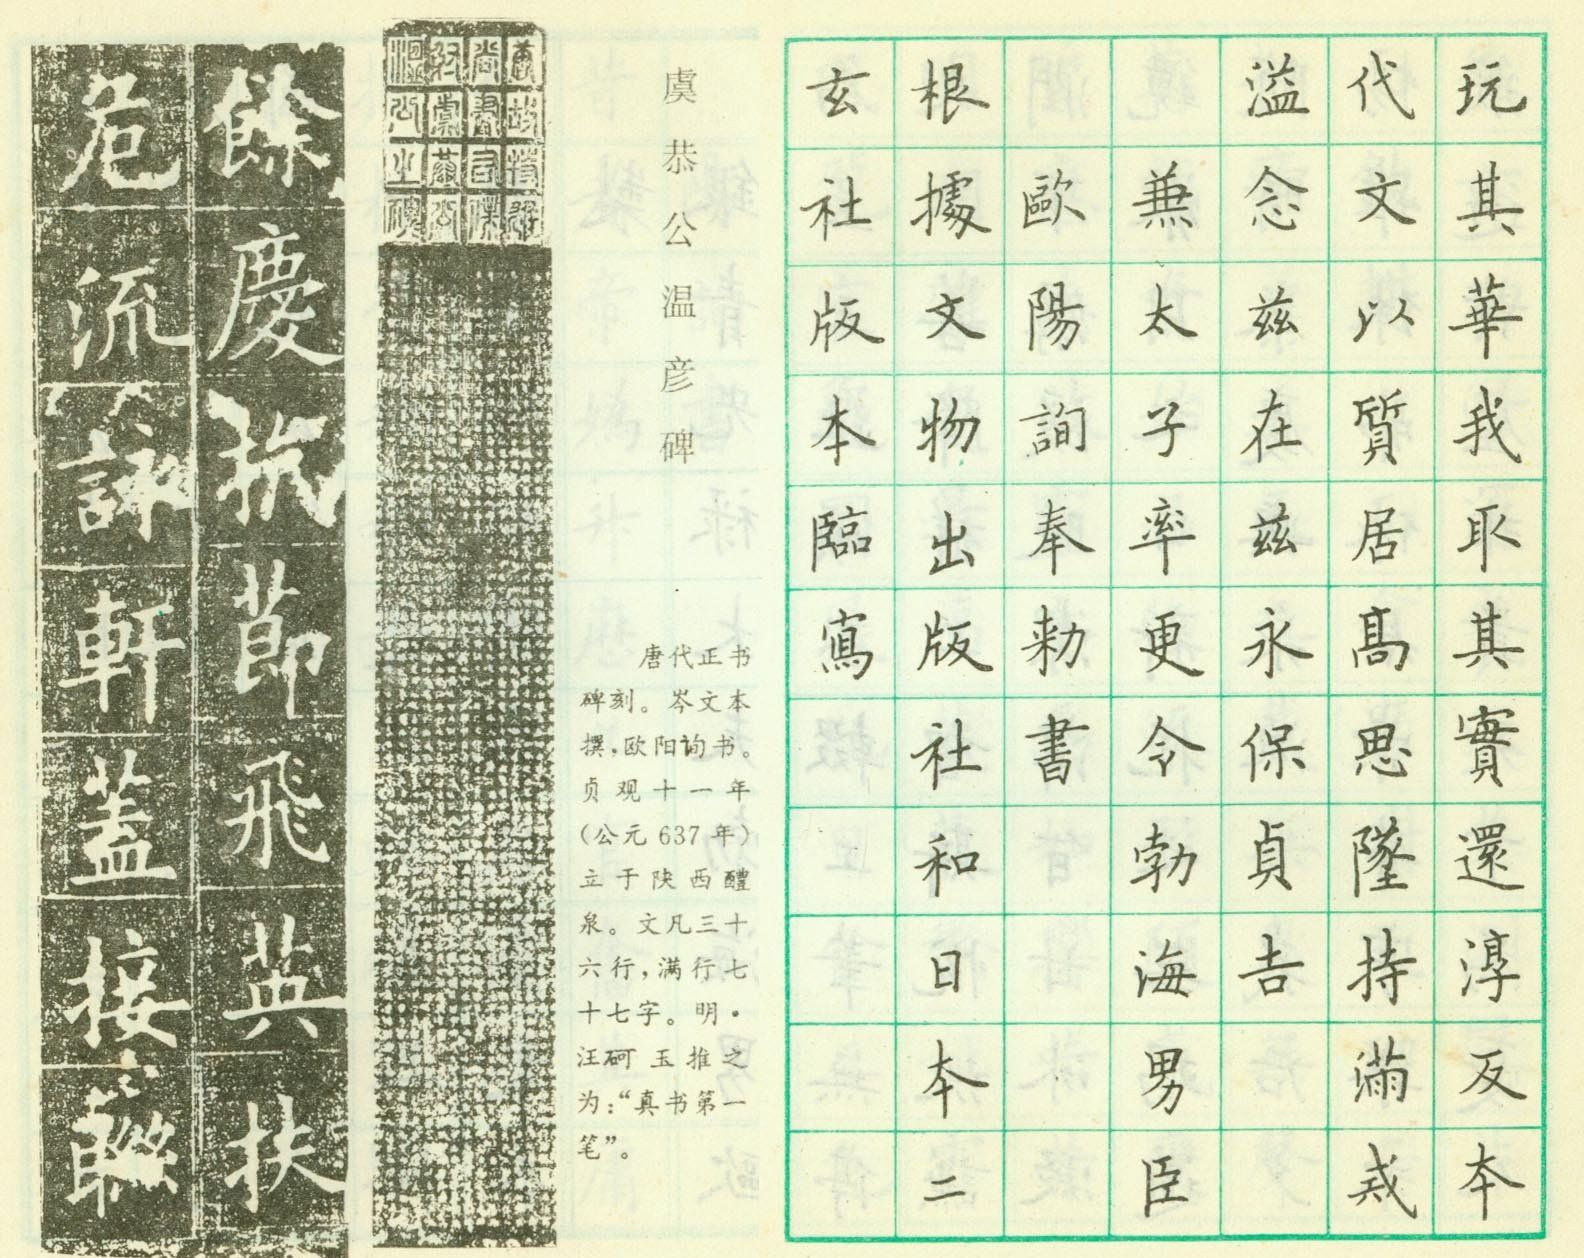 玩其華我取其實還淳反本
代文以質居髙思墜持滿戒
溢念兹在兹永保貞吉
兼太子率更令勃海男臣
歐陽詢奉勅書
根據文物出版社和日本二
玄社版本臨寫
虞恭公温彦碑
唐代正书
碑刻。岑文本
撰,欧阳询书。
贞观十一年
(公元637年)
立于陕西醴
泉。文凡三十
六行,满行七
十七字。明·
汪砢玉推之
为:“真书第一
笔”。
唐故特進
尚書右僕
射虞恭公
溫公之碑
餘慶抗節飛英扶
危流詠軒蓋接聯